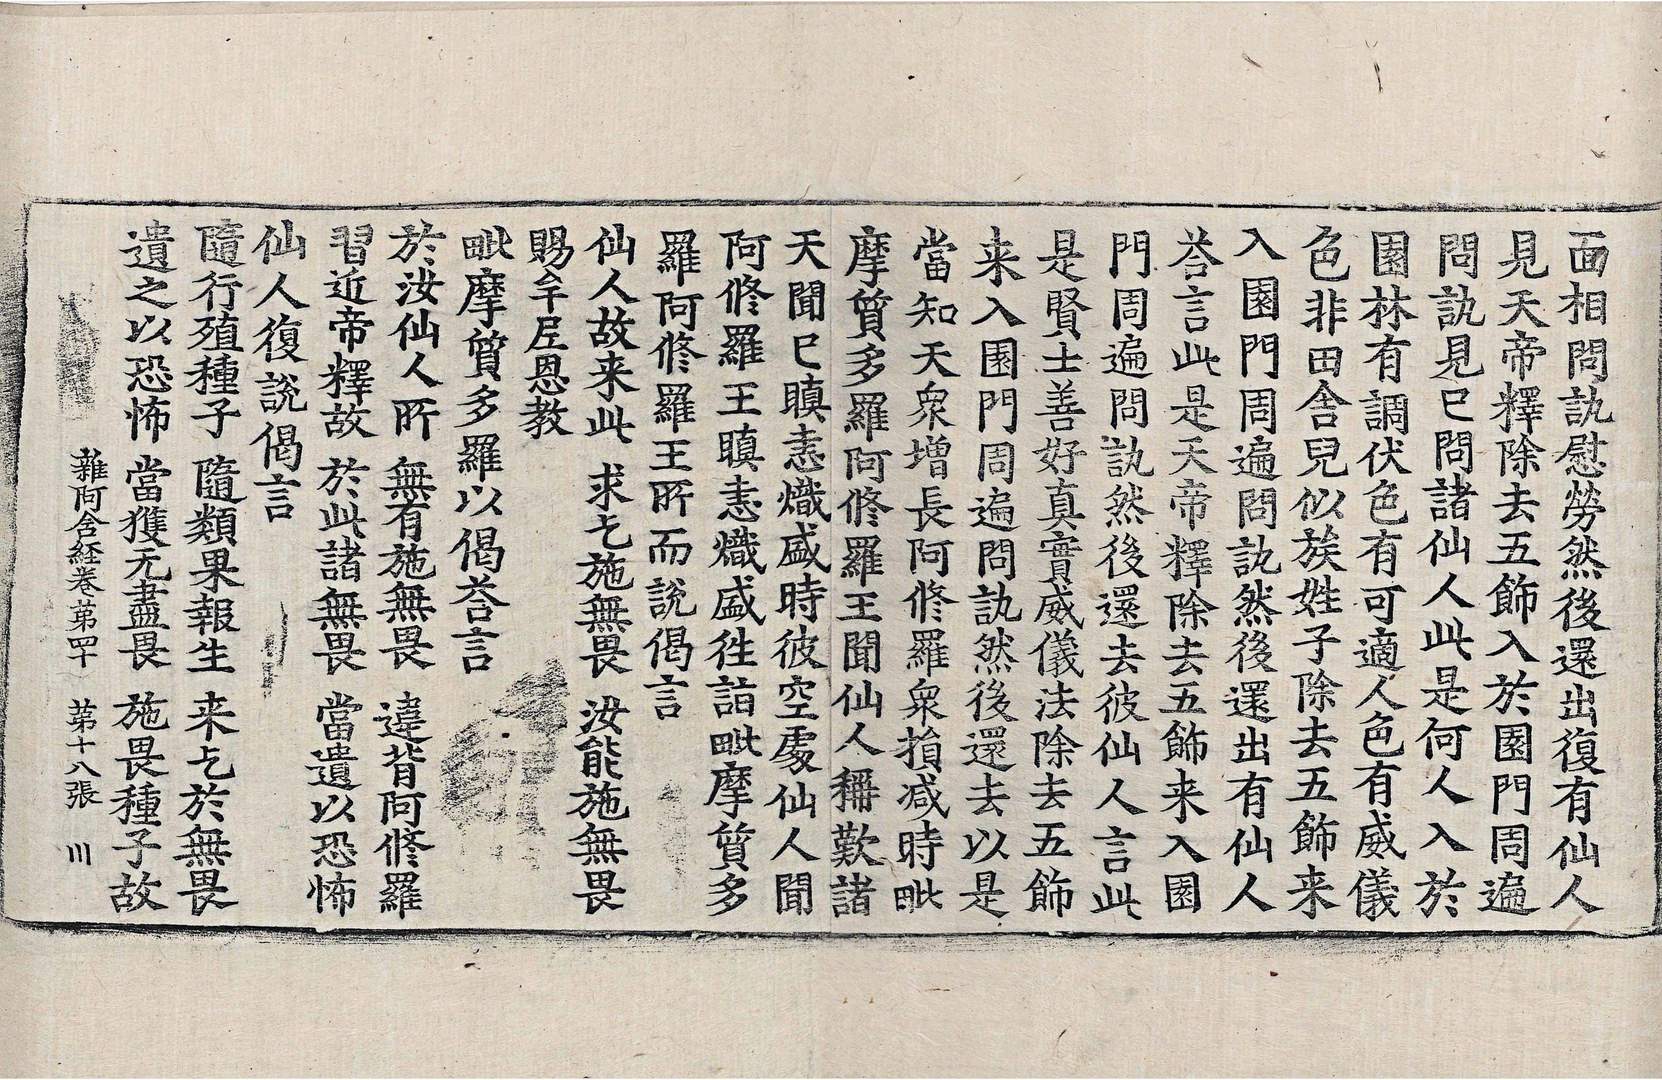 面相問訊慰勞然後還出復有仙人
見天帝釋除去五飾入於園門周遍
問訊見已問諸仙人此是何人入於
園林有調伏色有可適人色有威儀
色非田舍兒似族姓子除去五飾来
入園門周遍問訊然後還出有仙人
荅言此是天帝釋除去五飾来入園
門周遍問訊然後還去彼仙人言此
是賢士善好真實威儀法除去五飾
来入園門周遍問訊然後還去以是
當知天衆增長阿脩羅衆損减時毗
摩質多羅阿脩羅王聞仙人稱歎諸
天聞已瞋恚熾盛時彼空處仙人聞
阿脩羅王瞋恚熾盛徃詣毗摩質多
羅阿脩羅王所而說偈言
仙人故来此 求乞施無畏 汝能施無畏
賜牟尼恩教
毗摩質多羅以偈荅言
於汝仙人所 無有施無畏 違背阿脩羅
習近帝釋故 於此諸無畏 當遺以恐怖
仙人復說偈言
隨行殖種子 隨類果報生 来乞於無畏
遺之以恐怖 當獲无盡畏 施畏種子故
雜阿含経卷第四十 第十八張 川